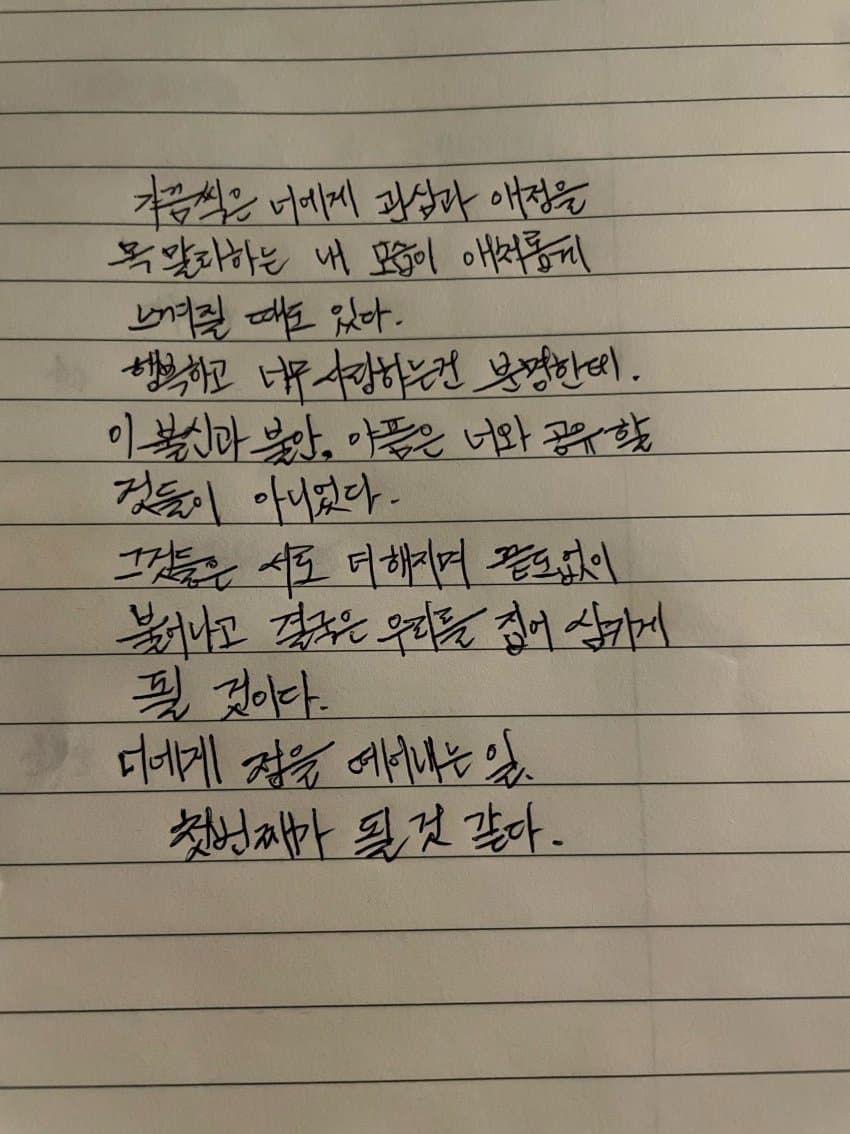 가끔씩은 너에게 관심과 애정을
목말라하는 내 모습이 애처롭게
느껴질 때도 있다.
행복하고 너무 사랑하는건 분명한데.
이 불신과 불안, 아픔은 너와 공유할
것들이 아니었다.
그것들은 서로 더해지며 끝도없이
불어나고 결국은 우리를 집어 삼키게
될 것이다.
너에게 정을 에어내는 일,
첫번째가 될 것 같다.